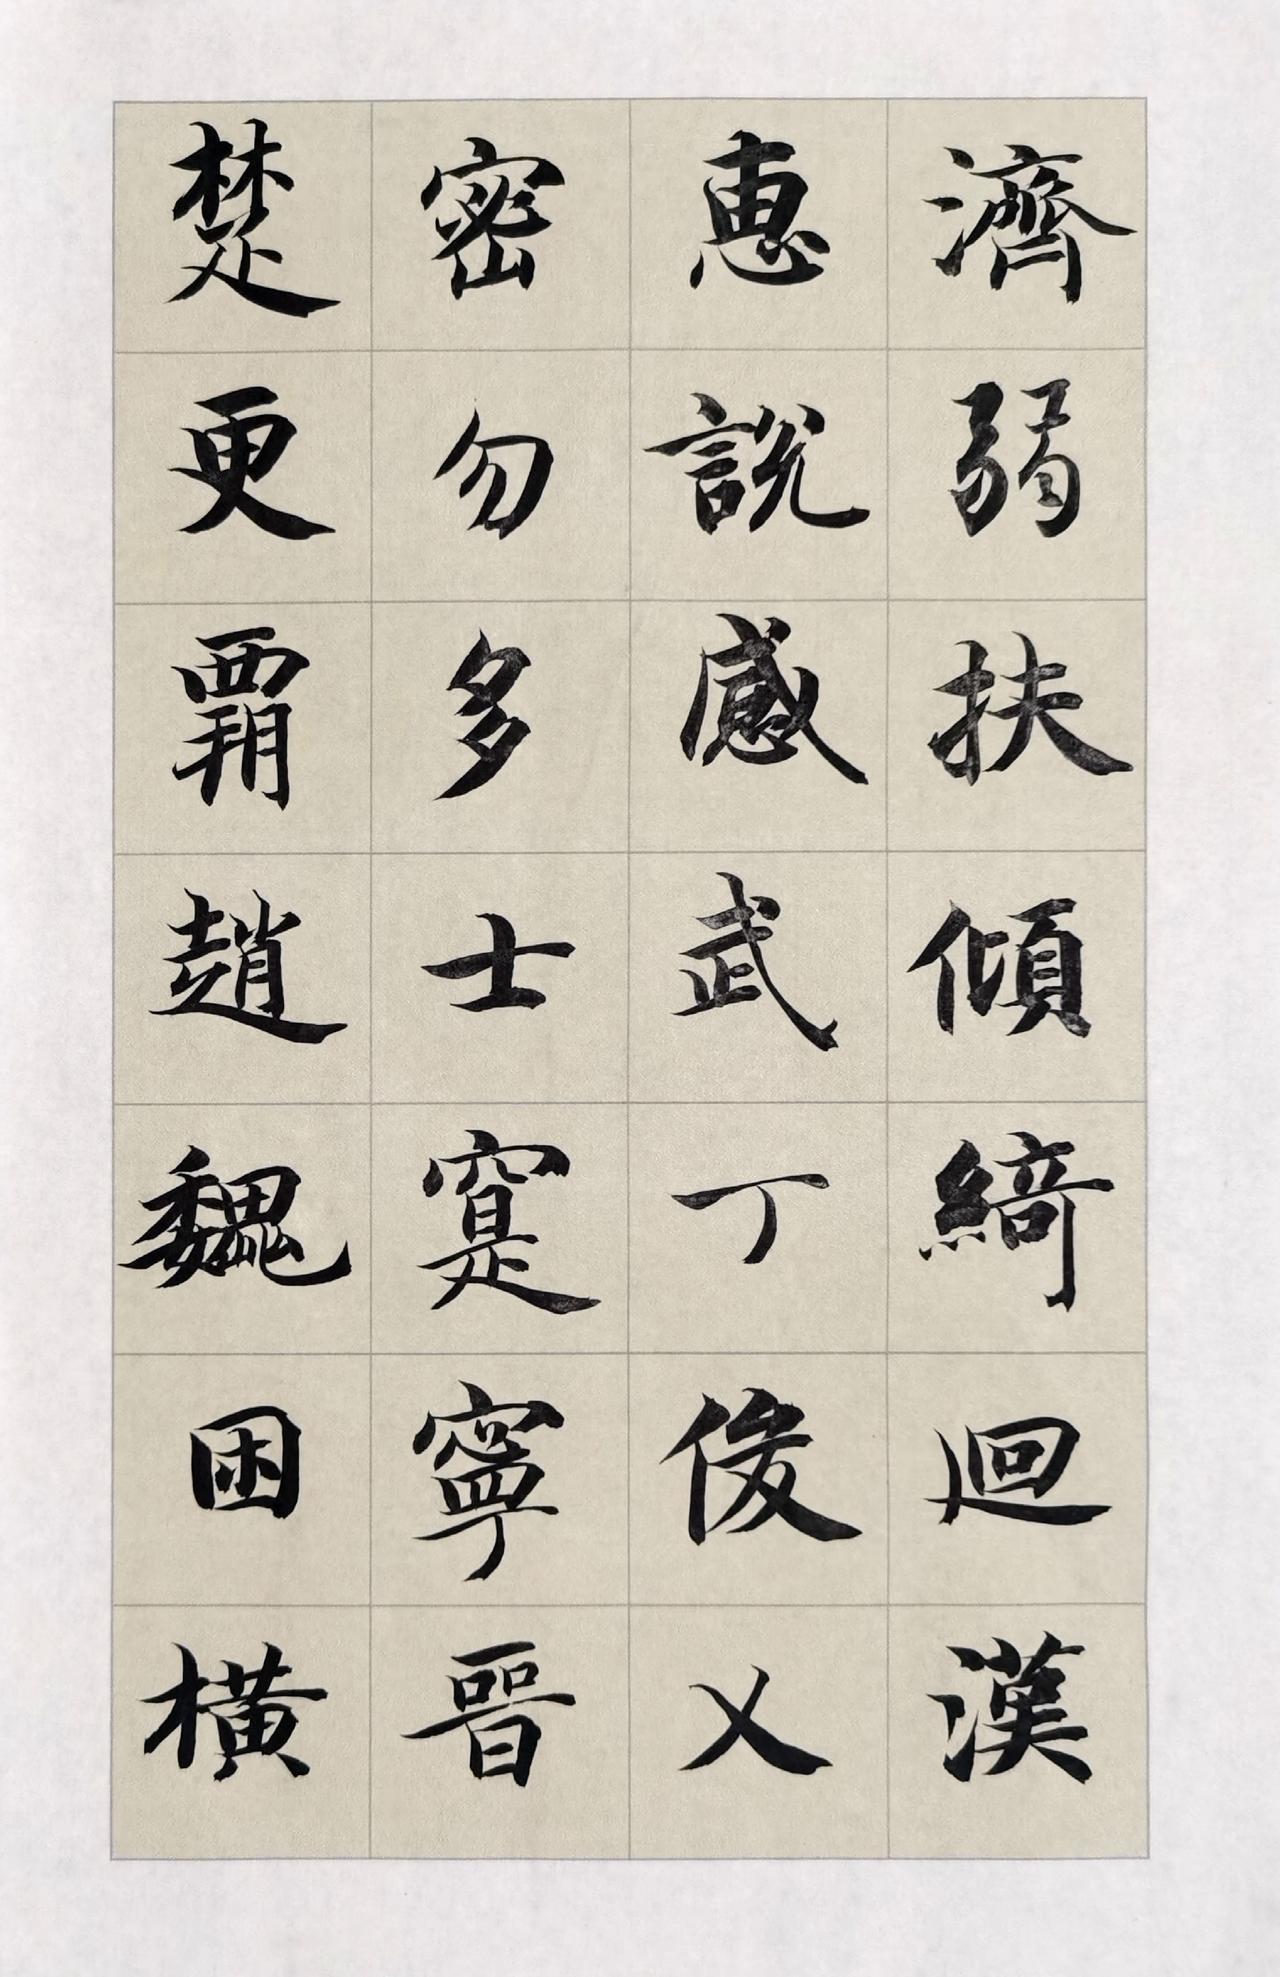 濟弱扶傾綺迴漢
惠說感武丁俊乂
密勿多士寔寧晉
楚更霸趙魏困橫